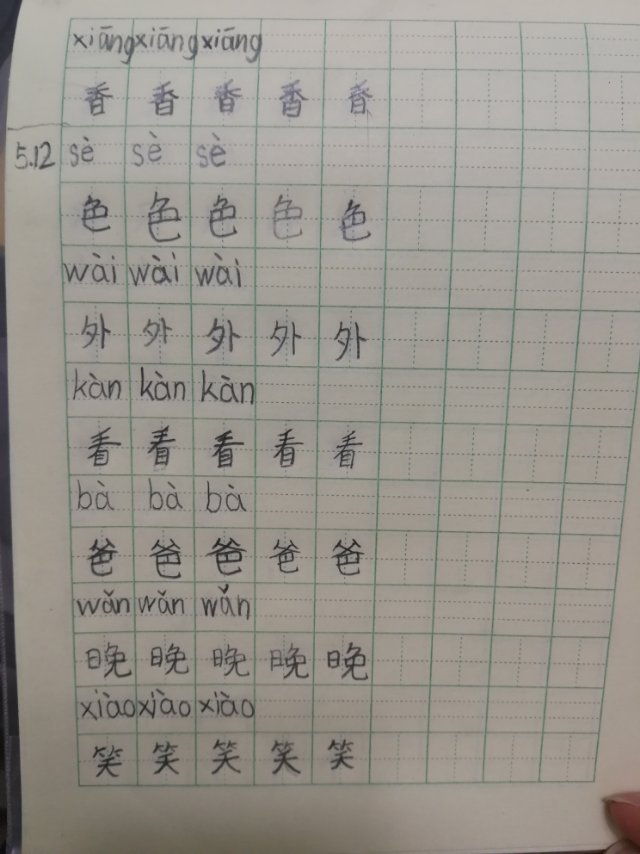 xiāng xiāng xiāng
香 香 香 香 香
5.12 sè sè sè
色 色 色 色 色
wài wài wài
外 外 外 外 外
kàn kàn kàn
看 看 看 看 看
bà bà bà
爸 爸 爸 爸 爸
wǎn wǎn wǎn
晚 晚 晚 晚 晚
xiào xiào xiào
笑 笑 笑 笑 笑